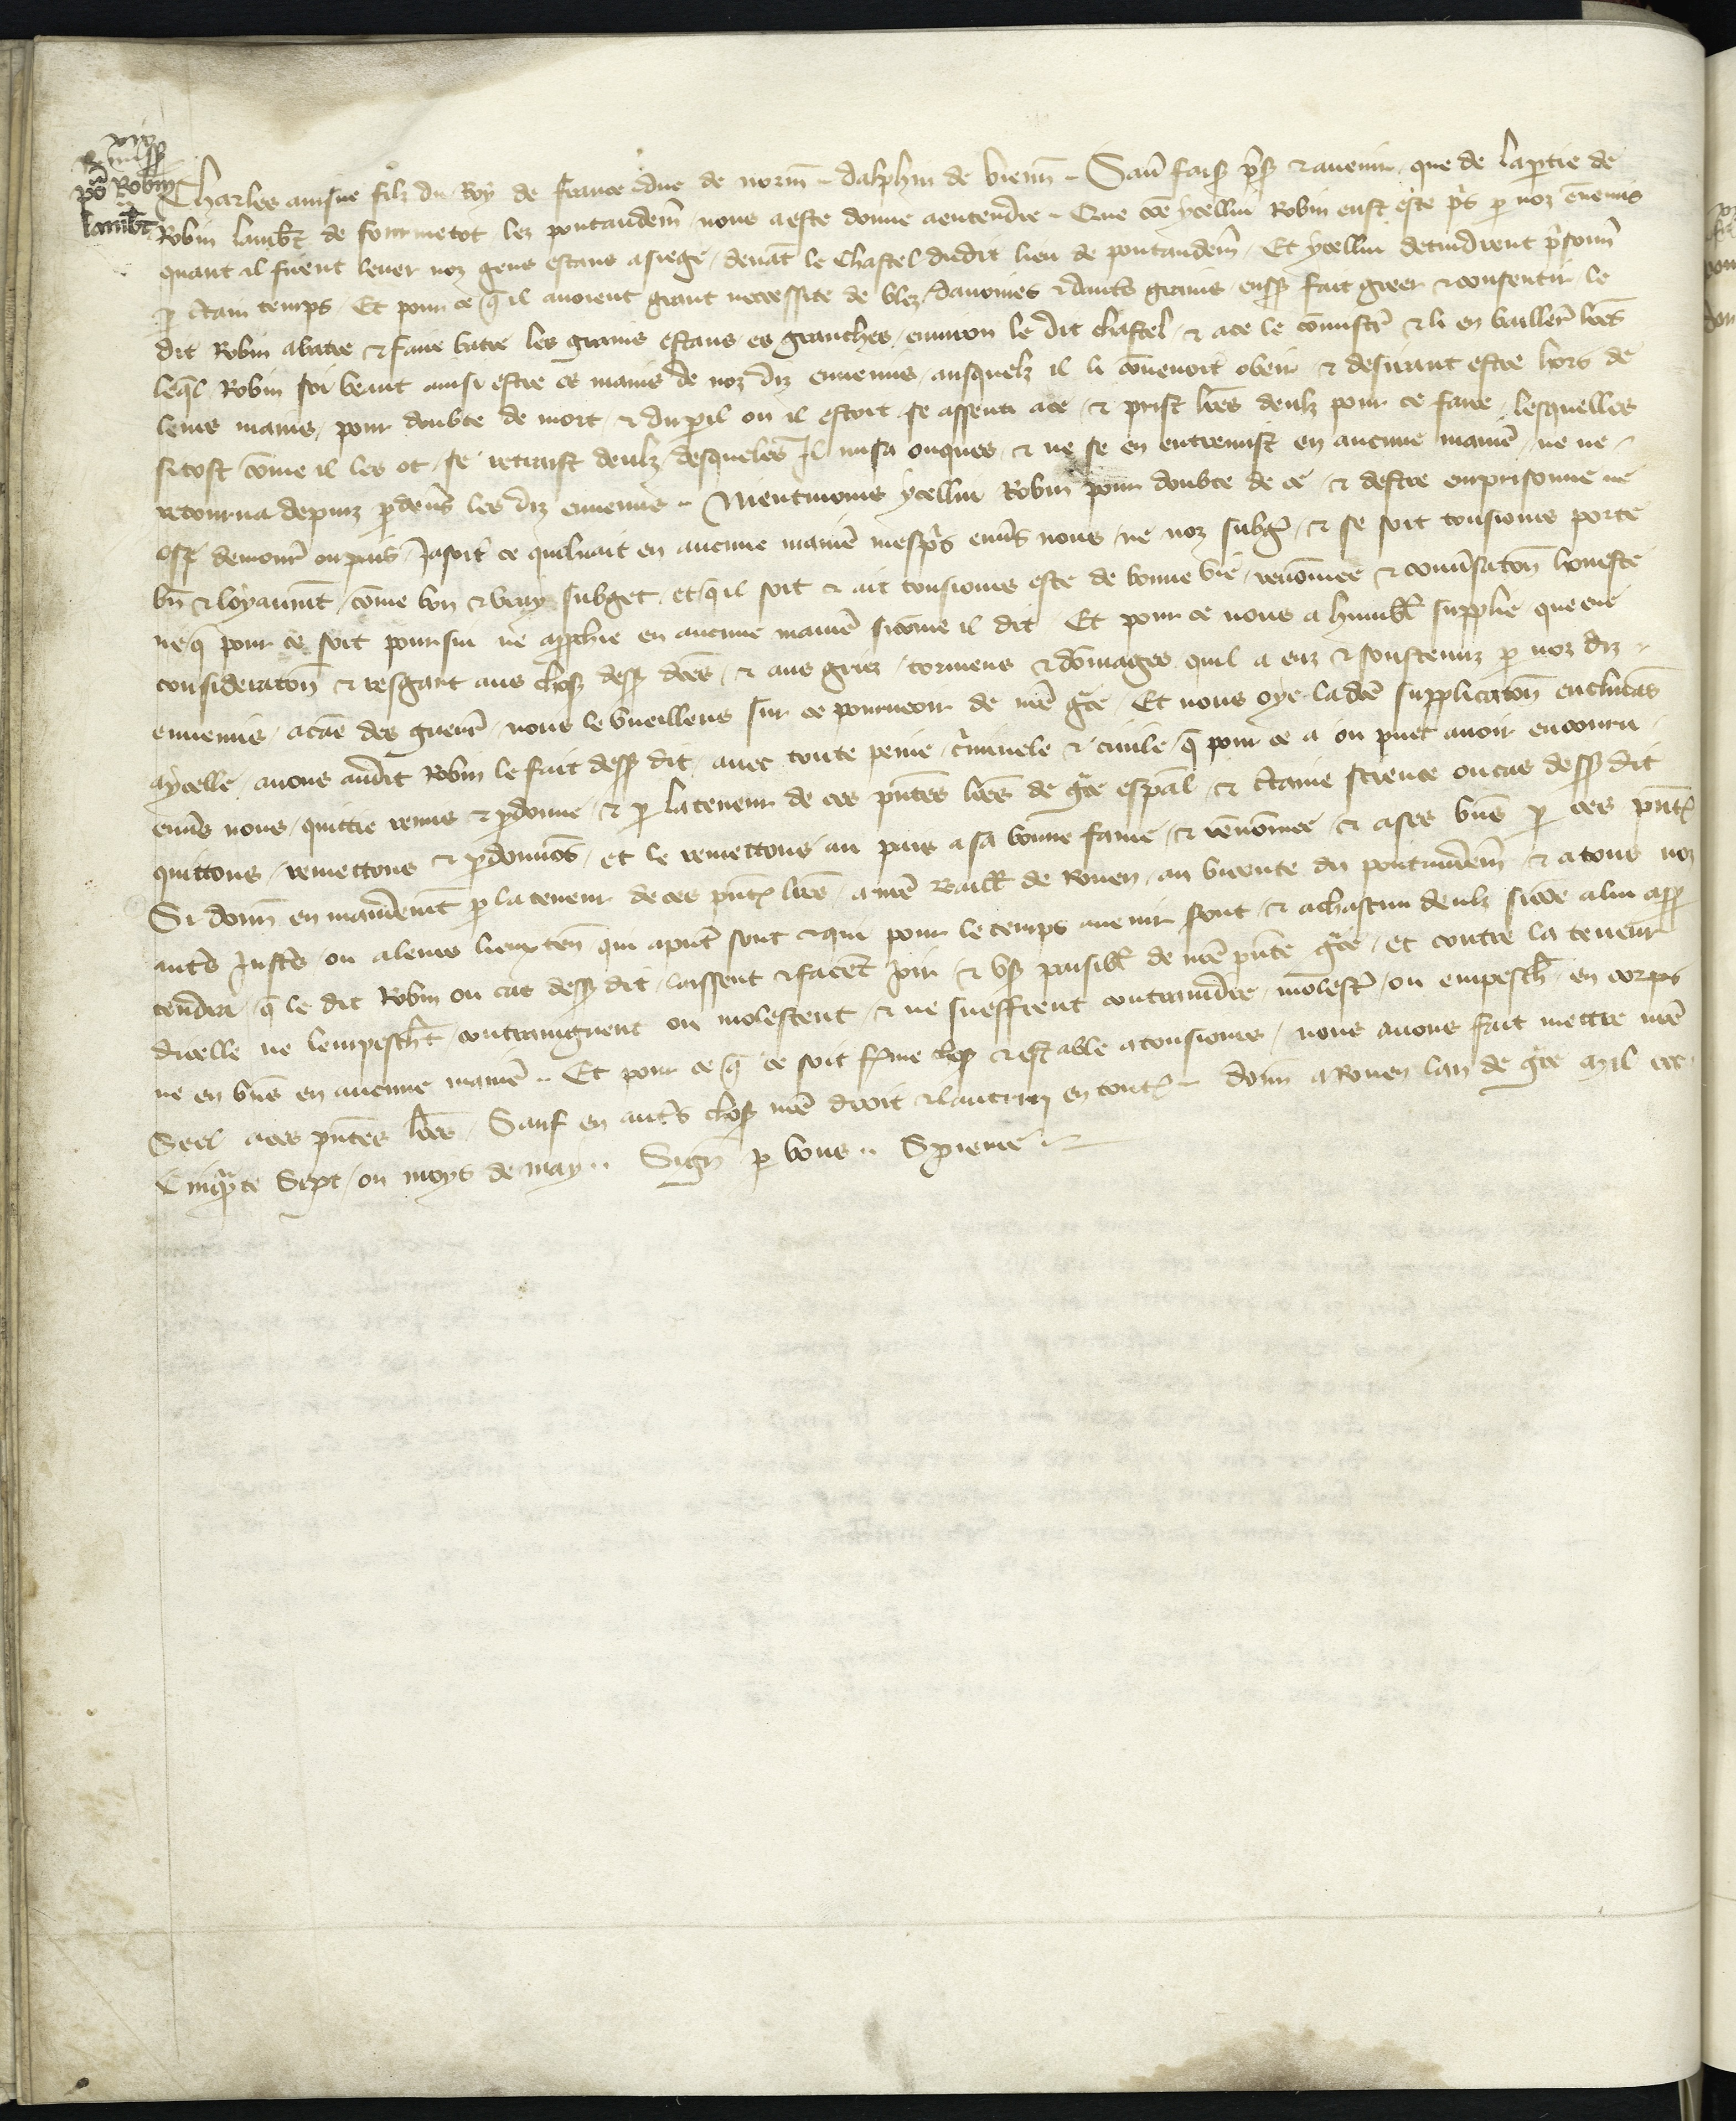 po Robin
lamb̄t
Charles ainsne filz du Roy de france duc de norm̄ . dalphin de vienn̄ . Sau͂ faisꝫ p̄sꝫ et avenir . que de la partie de
Robin lamb̄t de fourmetot lez pontaudem̄ / nous a este donne a entendre . Que cõe ycellui Robin eust este p̓s ꝑ noz ēnemis
quant il firent lever noz gens estans a siege / devāt le Chastel dudit lieu de pontaudem̄ . Et ycellui detindrent p̓sonn̄
ꝑ c̄tain temps . Et pour ce q̄ il avoient grant neccessite de blez / davoines et daut̓s grains / eussꝫ fait greer et consentir le
dit Robin a batre et faire batre les grains estans es granches / environ le dit chastel / et a ce le cōmistr̄ et li en baillēr lr̄es
leq̄l Robin soi veant ainsi estre es mains de noz diz ennemis / ausquelz il li cōvenoit obeir et desirant estre hors de
leurs mains / pour doubte de mort / et du ꝑil ou il estoit se assenti a ce / et prist lr̄es deulz pour ce faire / lesquelles
si tost cōme il les ot / se retraist deulz / desqueles Il nusa onques / et ne se en entremist en aucune manier̄ / ne ne
retourna depuiz ꝑ dev̄s les diz ennemis . Nientmoins ycellui Robin pour doubte de ce / et destre emprisonne ne
ose demourer ou pais / Jasoit ce quil nait en aucune manier̄ mesp̓s env̄s nous / ne noz subgiz / et se soit tousiours porte
bn̄ et loyaum̄t / cōme bon et vray subget / et q̄ il soit et ait tousiours este de bonne vie / renōmee et conv̄sacōn honeste
ne q̄ pour ce soit poursui ne approchie en aucune manier̄ sicōme il dit . Et pour ce nous a humbl̄ supplie que eue
consideracōn et resgart aus chosꝫ dessꝫ dc̄es / et aus griez / tormens et dōmages quil a euz et soustenuz ꝑ noz diz
ennemis / a cāe des guerr̄ / nous le vueillens sur ce pourveoir de nr̄e gr̄ce . Et nous oye la dc̄e supplicacōn enclināns
a ycelle / avons audit Robin le fait dessꝫ dit / avec toute peine / c̓minele et civile / q̄ pour ce a ou puet avoir encouru
env̄s nous / quittie remis et ꝑdonne / et ꝑ la teneur de ces pn̄tes lr̄es de gr̄ce esp̄al / et c̄taine science ou cas dessꝫ dit
quittons / remettons et ꝑdonnōs / et le remettons au pais a sa bonne fame / et renōmee / et a ses biēs ꝑ ces pn̄tꝫ
Si donn̄ en mandem̄t ꝑ la teneur de ces pn̄tꝫ lr̄es / a nr̄e Baill̄ de Rouen / au viconte du pontaudem̄ / et a tous noz
aut̓s Just̓s / ou a leurs lieux ten̄ qui apn̄t sont et qui pour le temps avenir sont / et a chascun deulz sicōe a lui appꝫ
tendra / q̄ le dit Robin ou cas dessꝫ dit / laissent et facent joir / et usꝫ paisibl̄ de nr̄e pn̄te gr̄ce / et contre la teneur
dicelle ne lempeschēt / contraingnent ou molestent / et ne sueffrent contraindre / molester̄ / ou empesch̄ / en corps
ne en biēs en aucune manier̄ . Et pour ce q̄ ce soit f̄me chosꝫ et estable a tousiours / nous avons fait mettre nr̄e
Seel a ces pn̄tes lr̄es . Sauf en aut̓s chosꝫ nr̄e droit et lautrui en toutꝫ . donn̄ a Rouen lan de gr̄ce mil ccc
Cinq̄nte Sept / ou moys de may .. Sign̄ ꝑ vous ..